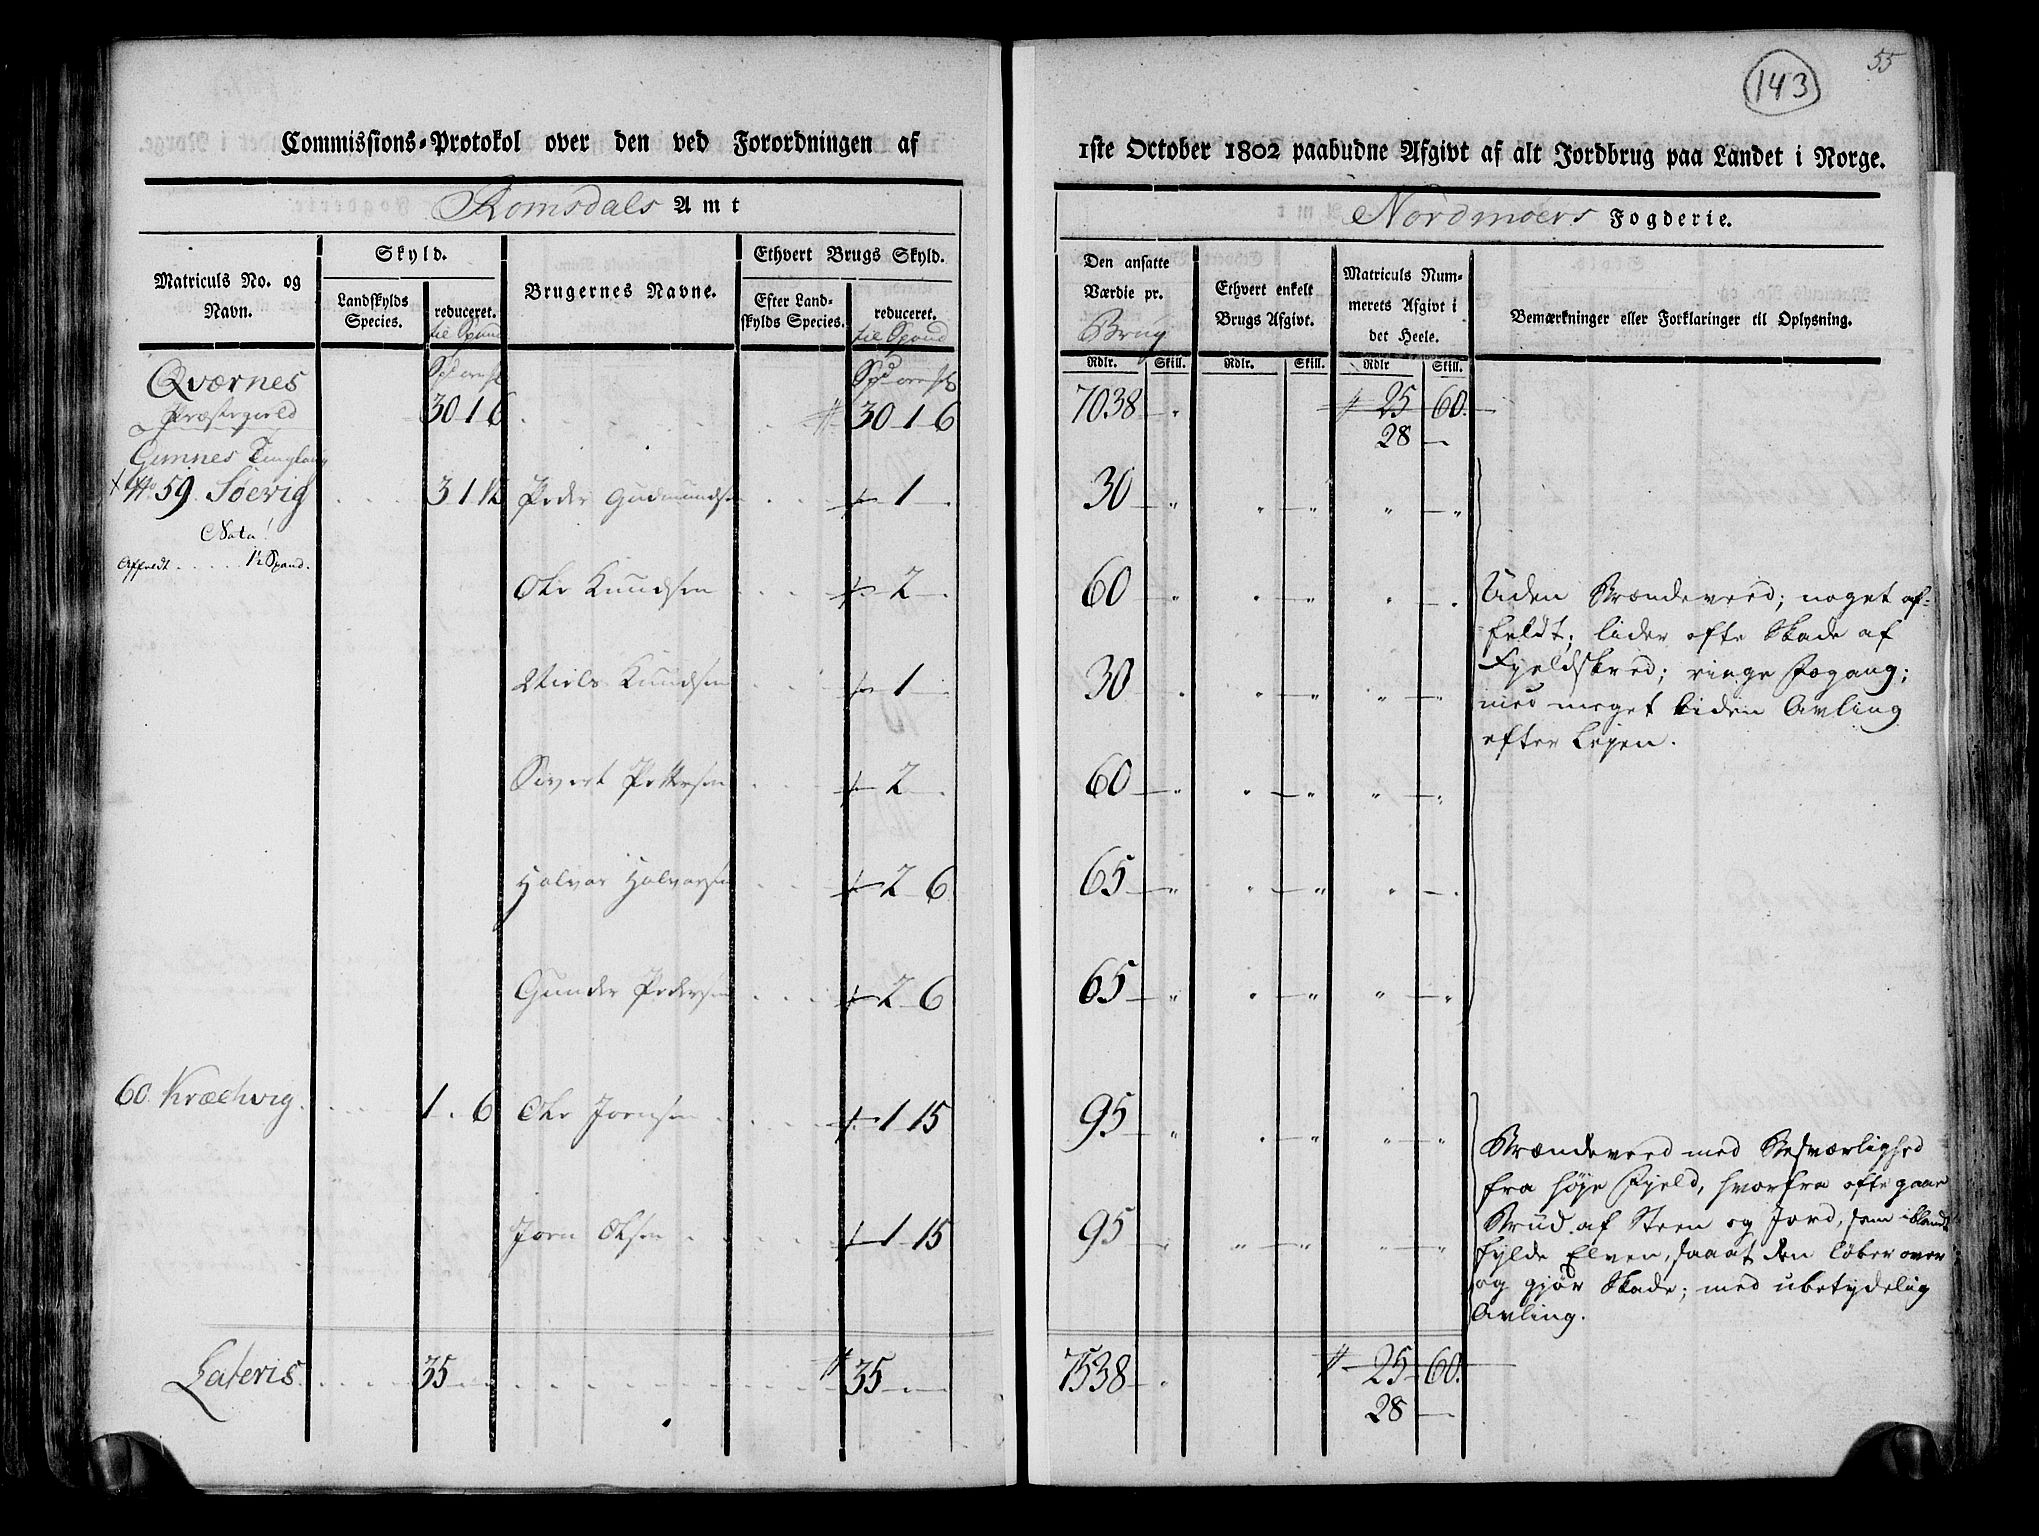 143
55
Commissions-Protokol over den ved Forordningen af
1ste October 1802 paabudne Afgivt af alt Jordbrug paa Landet i Norge.
Romsdals Amt
Nordmoers Fogderie.
Matriculs No. og Navn.
Skyld.
Landskylds Species.
reduceret.
til Spand
Brugernes Navne.
Ethvert Brugs Skyld.
Efter Landskylds Species.
reduceret.
til Spand
Den ansatte Værdie pr.
Brug
Ethvert enkelt Brugs Afgivt.
Matriculs Nummerets Afgivt i det Heele.
Bemærkninger eller Forklaringer til Oplysning.
Rdlr. Skill. Rdlr. Skill. Rdlr Skill.
Qværnes
Præstegield
30 1 6 30-1-6 7038 25 60
28
Gimnes Tinglaug
No. 59. Søevig 3 1 12 Peder Gudmundsen 1 30
Nota!
Affældt 1½ Spand.
Ole Knudsen 2 60
Niels Knudsen 1 30
Sivert Pettersen 2 60
Halvor Halvorsen 2 6 65
Gunder Pedersen 2 6 65
Uden Brændeveed; noget af-
feldt; lider ofte Skade af
Fjeldskred; ringe Havgang;
med meget liden Avling
efter Lejen.
60. Krædvig 1 . 6 Ole Jornsen 1 15 95
Jorn Olsen 1-15 95
Brændeveed med Besværlighed
fra høje Fjeld, hvorfra ofte gaar
Brud af Steen og Jord, som iblandt
fylde Elven, saaat den løber over
og gjør Skade; med ubetydelig
Avling.
Lateris 35 35 7538 25 60
28